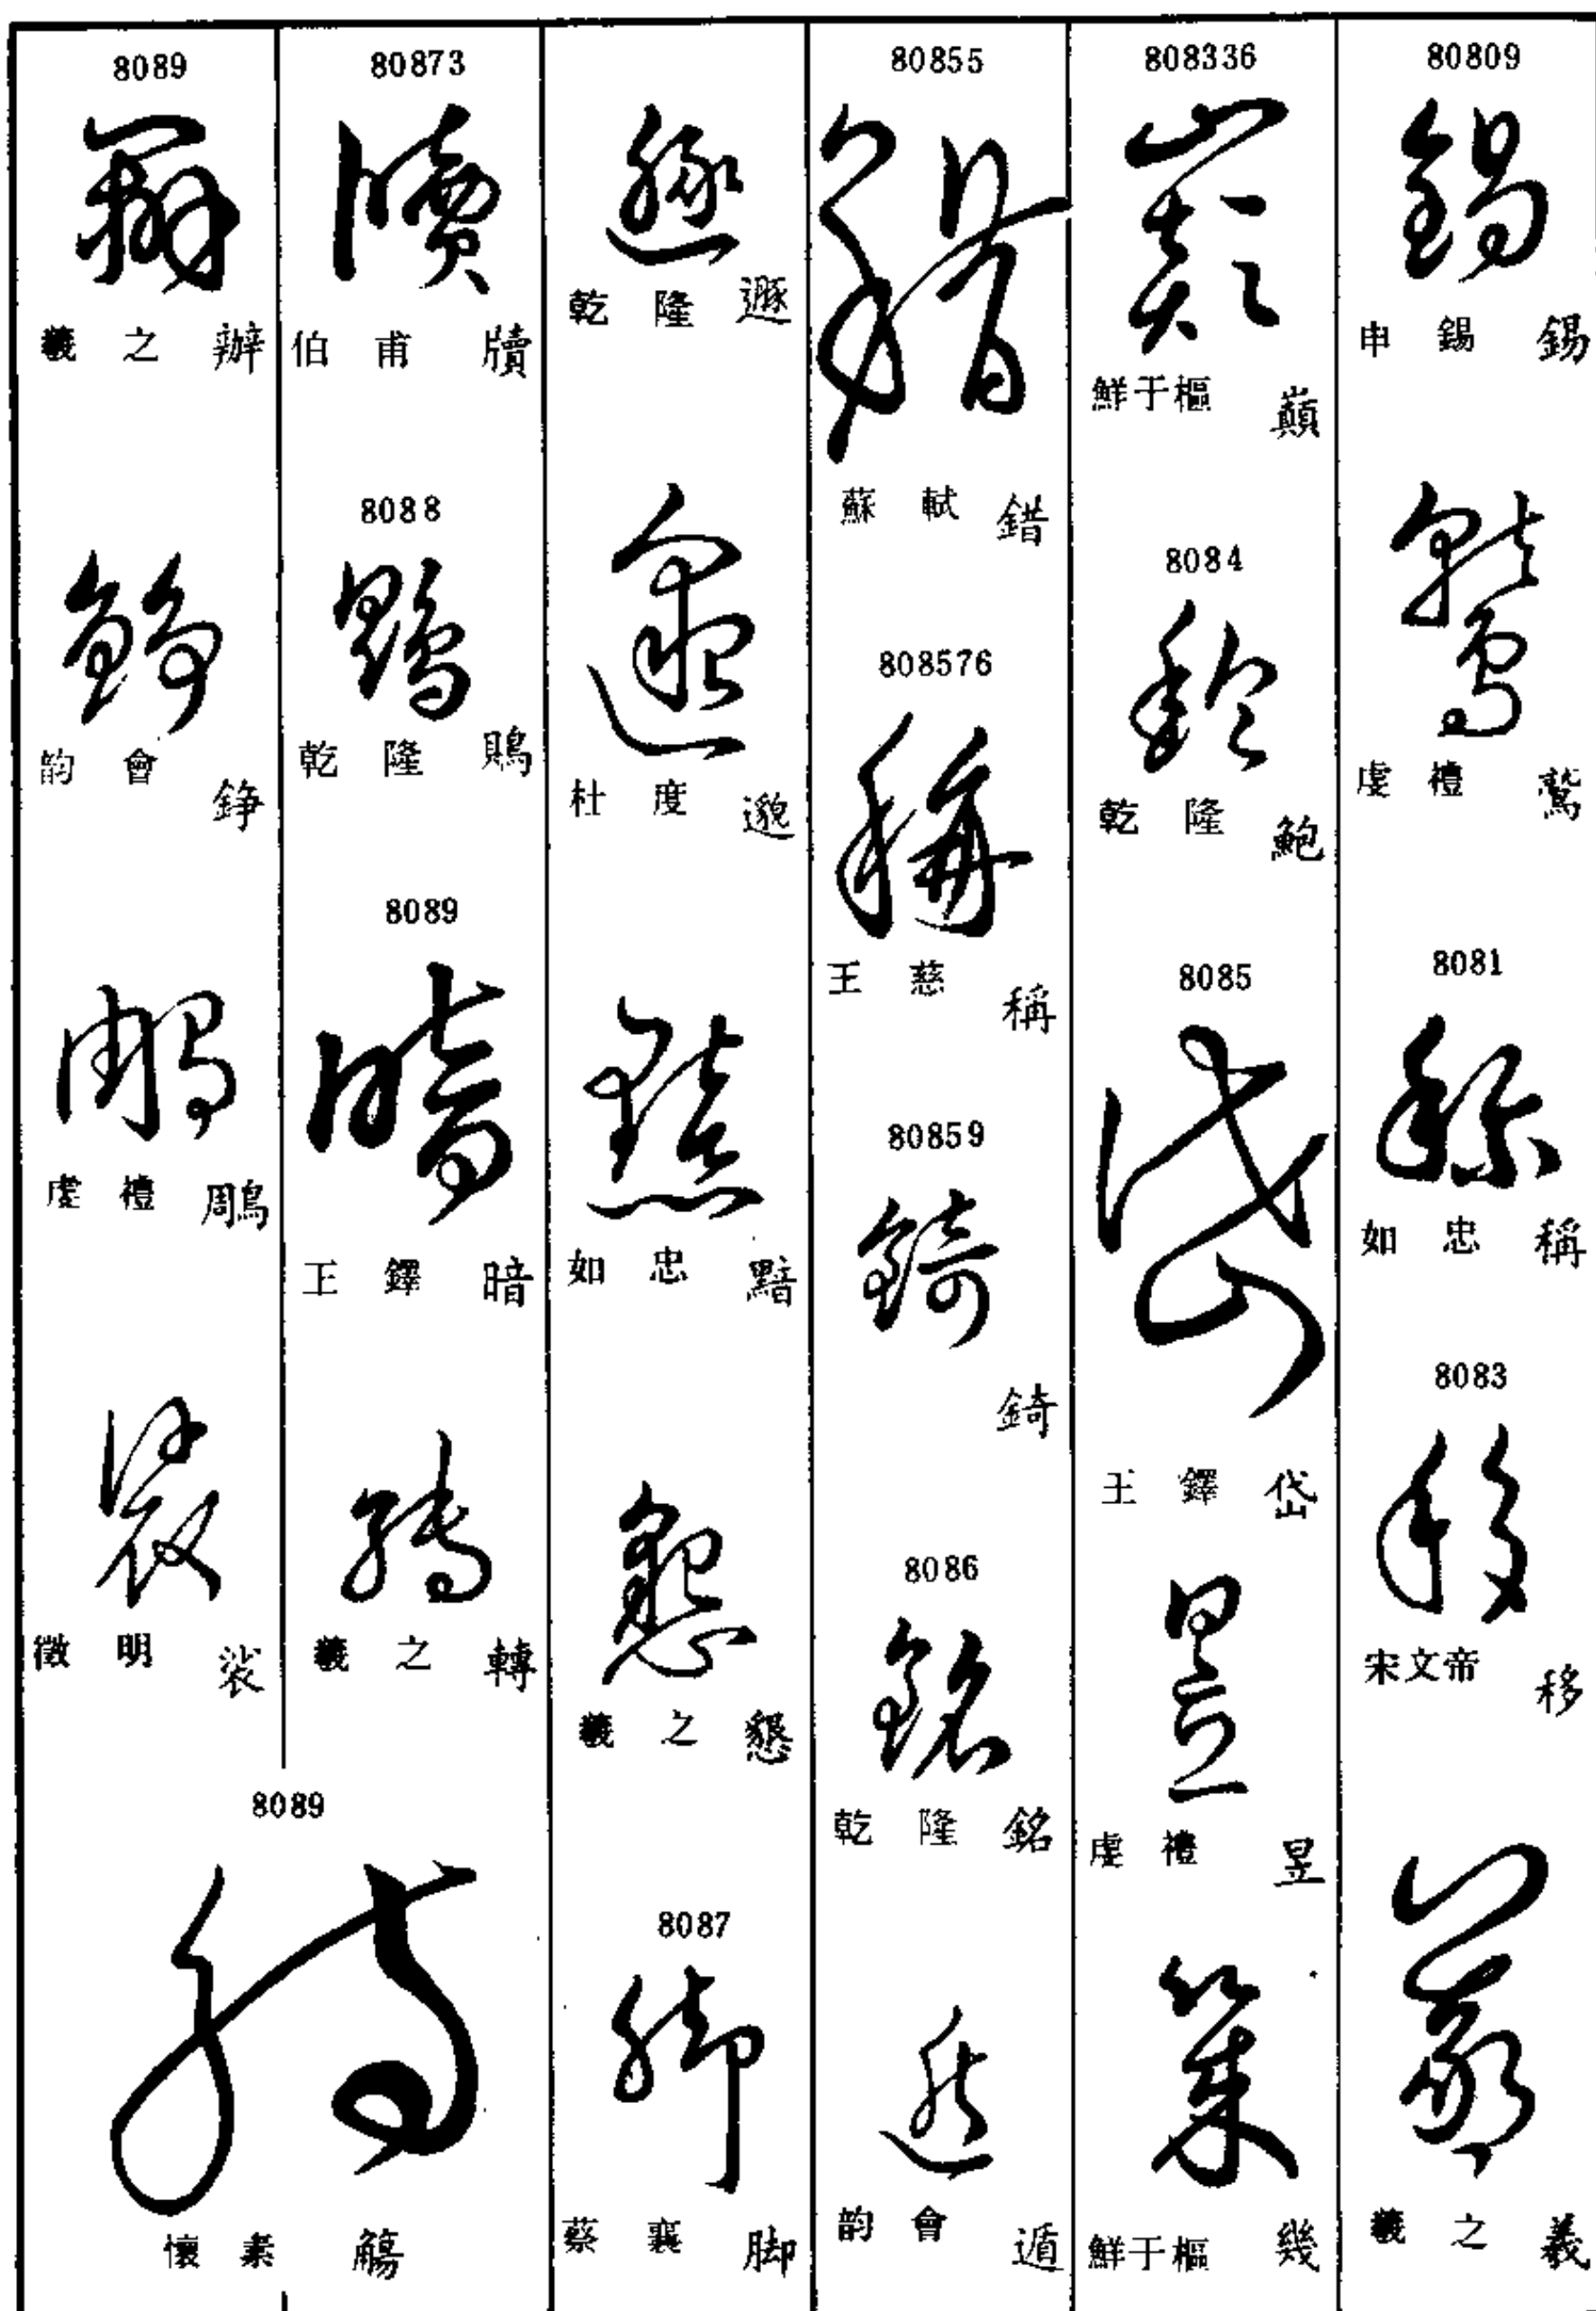 80809
申錫 錫
虔禮 鷲
8081
如忠 稱
8083
宋文帝 移
羲之 義
808336
鮮于樞 巔
8084
乾隆 鮑
8085
王鐸 岱
虔禮 昱
鮮于樞 幾
80855
蘇軾 錯
808576
王慈 稱
80859
錡
8086
乾隆 銘
韵會 遁
乾隆 遯
杜度 邈
如忠 黯
羲之 懇
8087
蔡襄 脚
80873
伯甫 牘
8088
乾隆 鵙
8089
王鐸 暗
羲之 轉
8089
懷素 觴
8089
羲之 辦
韵會 錚
虔禮 鵰
徵明 裟